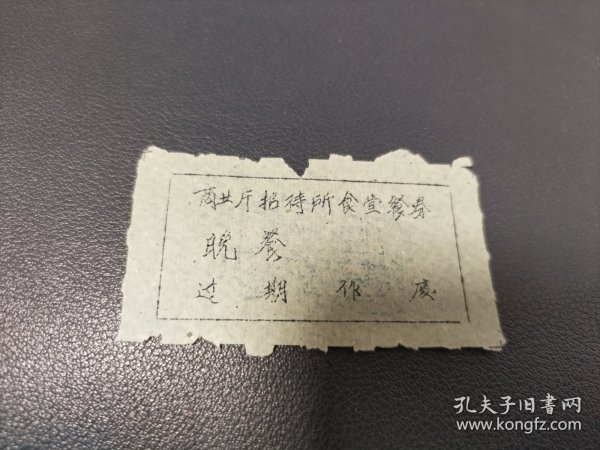 商业厅招待所食堂餐券
晚餐
过期作废
孔夫子旧书网
www.kongfz.com